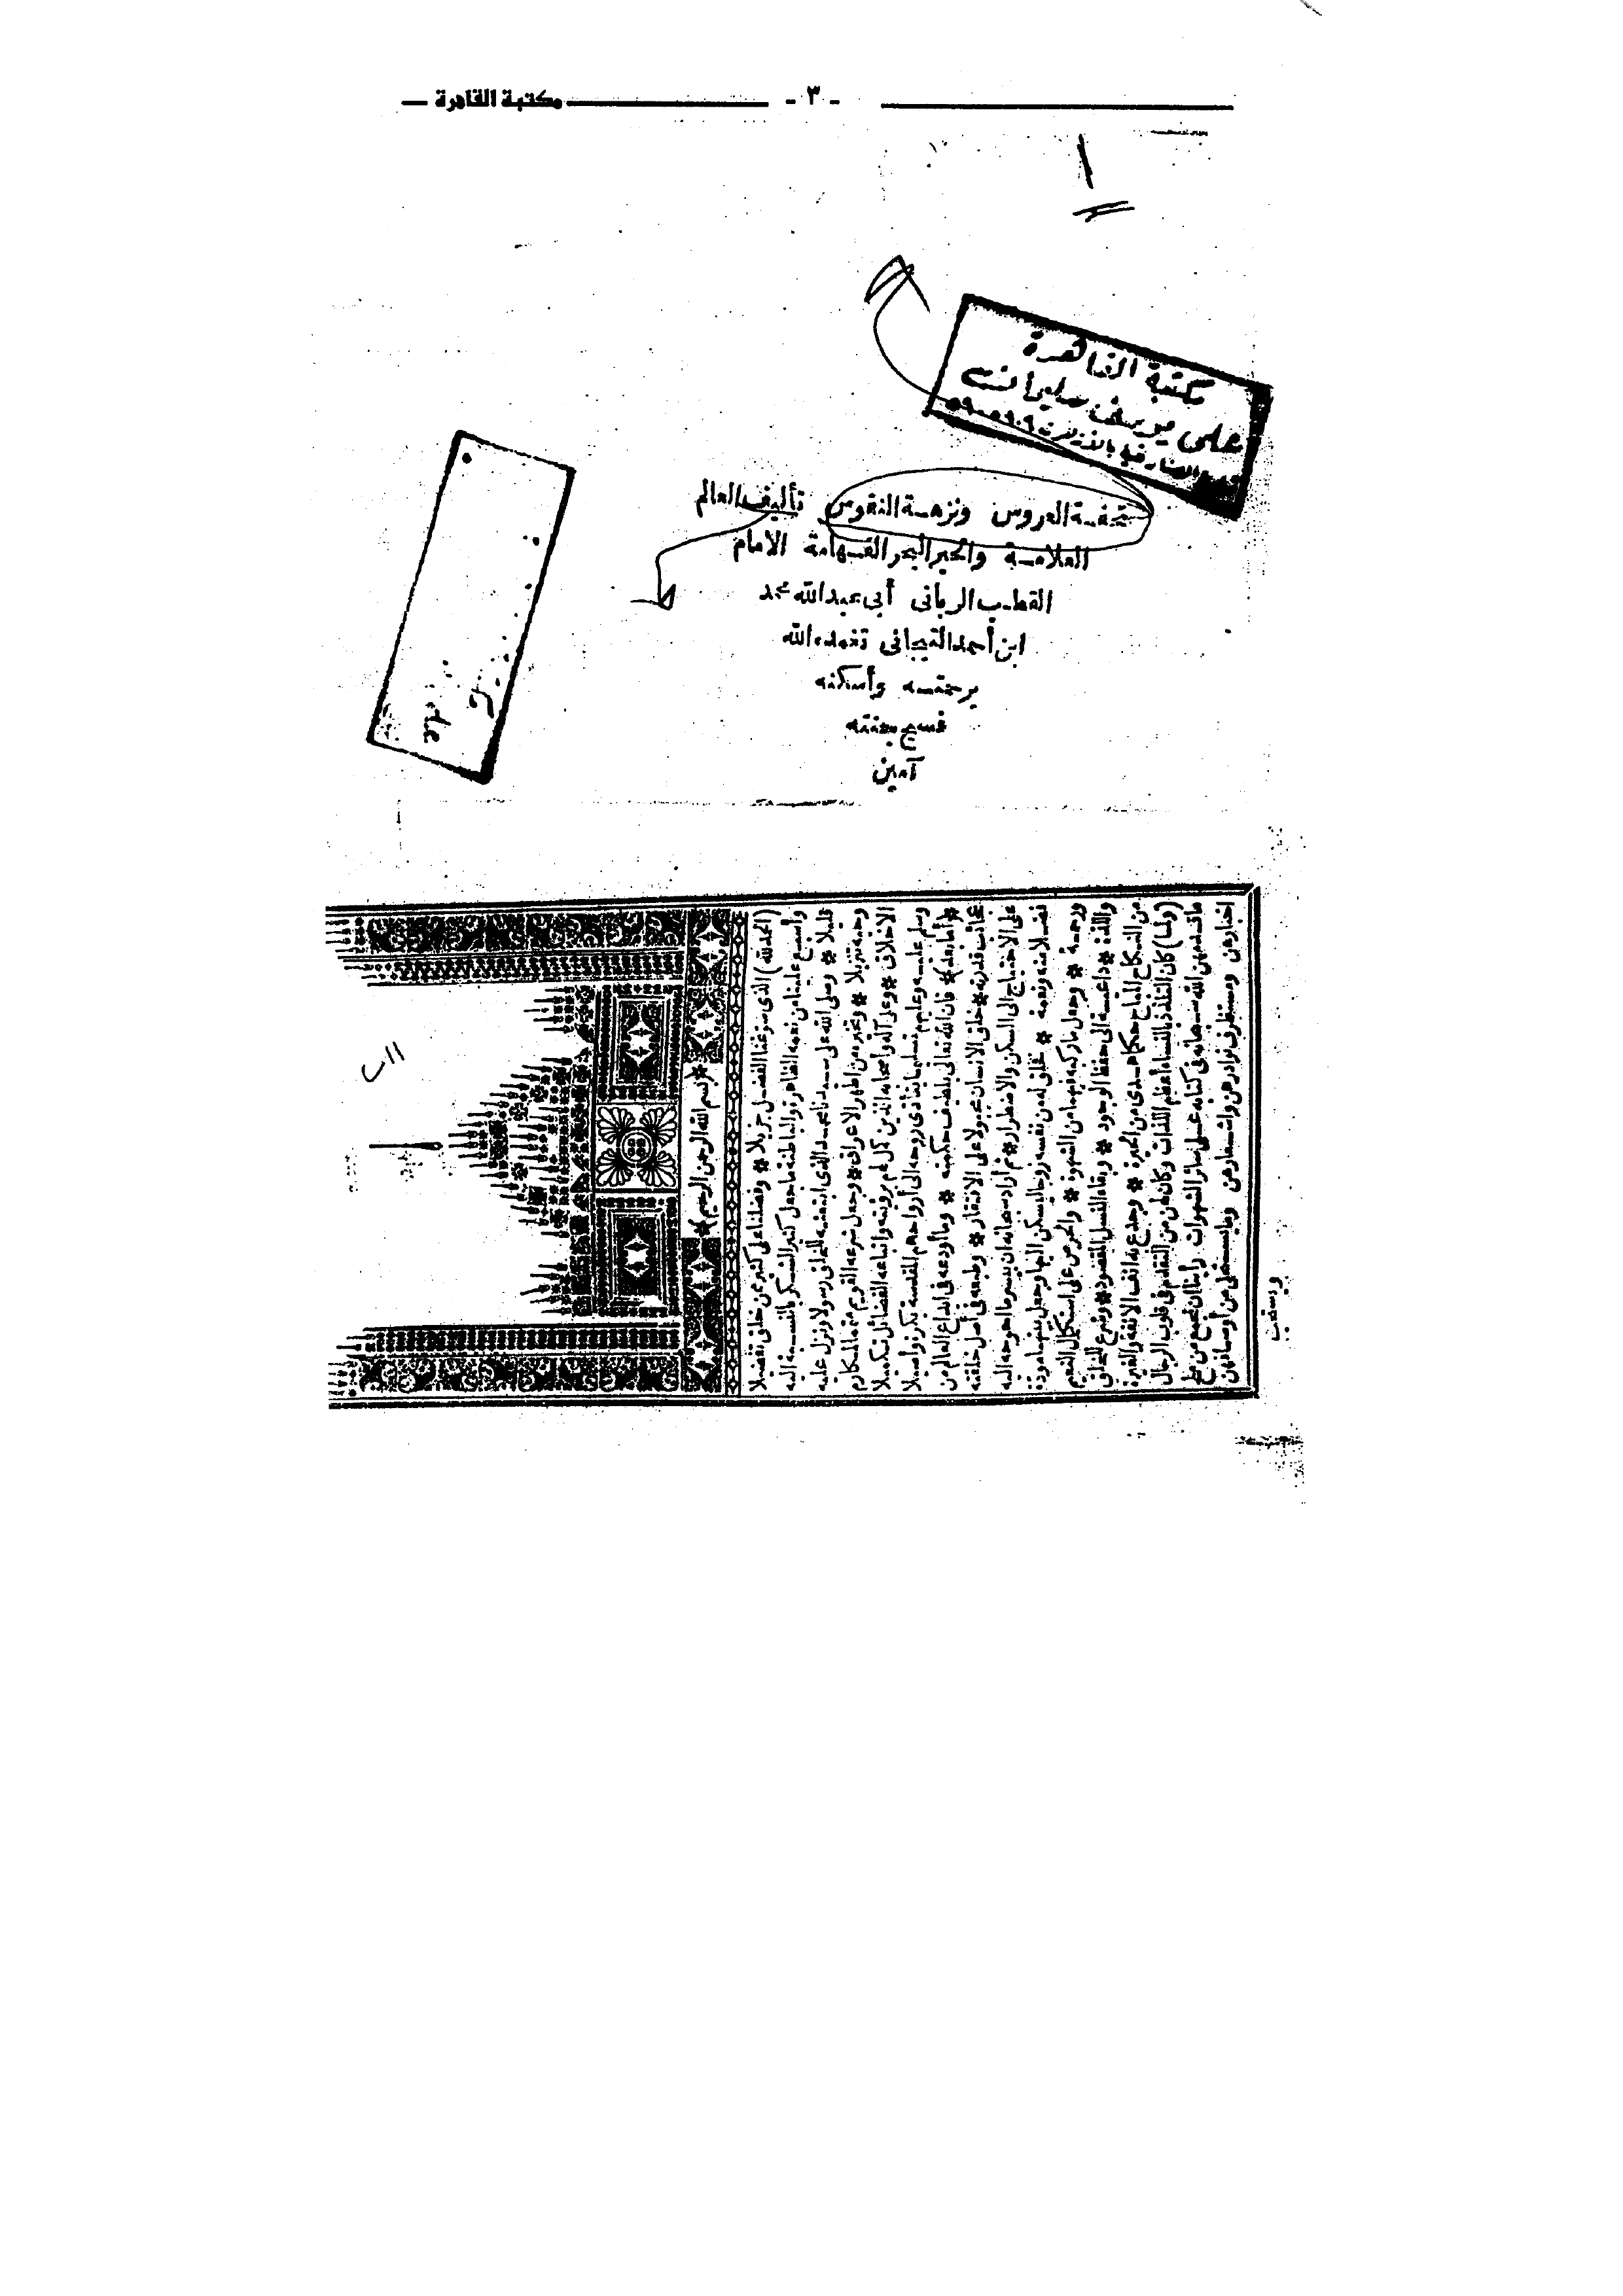 مكتبة القاهرة
- ٣ -
١
مكتبة القاهرة
على يوسف سليمان
تحفة العروس ونزهة النفوس تأليف العالم
العلامة والحبر البحر الفهامة الامام
القطب الربانى أبى عبد الله محمد
ابن أحمد التيجانى تغمده الله
برحمته وأسكنه
فسيح جنته
آمين
بسم الله الرحمن الرحيم
(الحمد لله) الذى سوغنا الفضل جزيلا * وفضلنا على كثير ممن خلق تفضيلا
وأسبغ علينا من نعمه الظاهرة والباطنة ما جعل كثير الشكر بالنسبة اليه
قليلا * وصلى الله على سيدنا محمد الذى ابتعثه للخلق رسولا ونزل عليه
وحيه تنزيلا * وتخيره من أطهر الاعراق * وجعل شرعه القويم متمما لمكارم
الاخلاق * وعلى آله وأصحابه الذين كمل لهم برؤيته واتباعه الفضائل تكميلا
وسلم عليه وعليهم تسليما يتأدى روحه الى أرواحهم المقدسة بكرة وأصيلا
* (أما بعد) * فان الله تعالى بلطيف حكمته * وما أودعه فى ابداع العالم من
عجائب قدرته * خلق الانسان مجبولا على الافتقار * وطبعه فى أصل خلقته
على الاحتياج الى السكن والاضطرار * ثم أراد سبحانه ان ييسر ما احوجه اليه
فضلا منه ونعمة * فخلق له من نفسه زوجا ليسكن اليها وجعل بينهما مودة
ورحمة * وجعل ما ركبه فيهما من الشهوة * والحرص على استكمال النعيم
واللذة * داعية الى حفظ الوجود * وبقاء النسل المقصود * وشرع للخلق
من النكاح المباح حكما هدى من الحيرة * وجدع به انف الانفة والغيرة
(ولما) كان التلذذ بالنساء أعظم اللذات وكان لهن من التقدم فى قلوب الرجال
ما قدمهن الله سبحانه فى كتابه على سائر الشهوات رأينا ان نجمع من ملح
اخبارهن ومستظرف نوادرهن واشعارهن وما يستحلى من أوصافهن